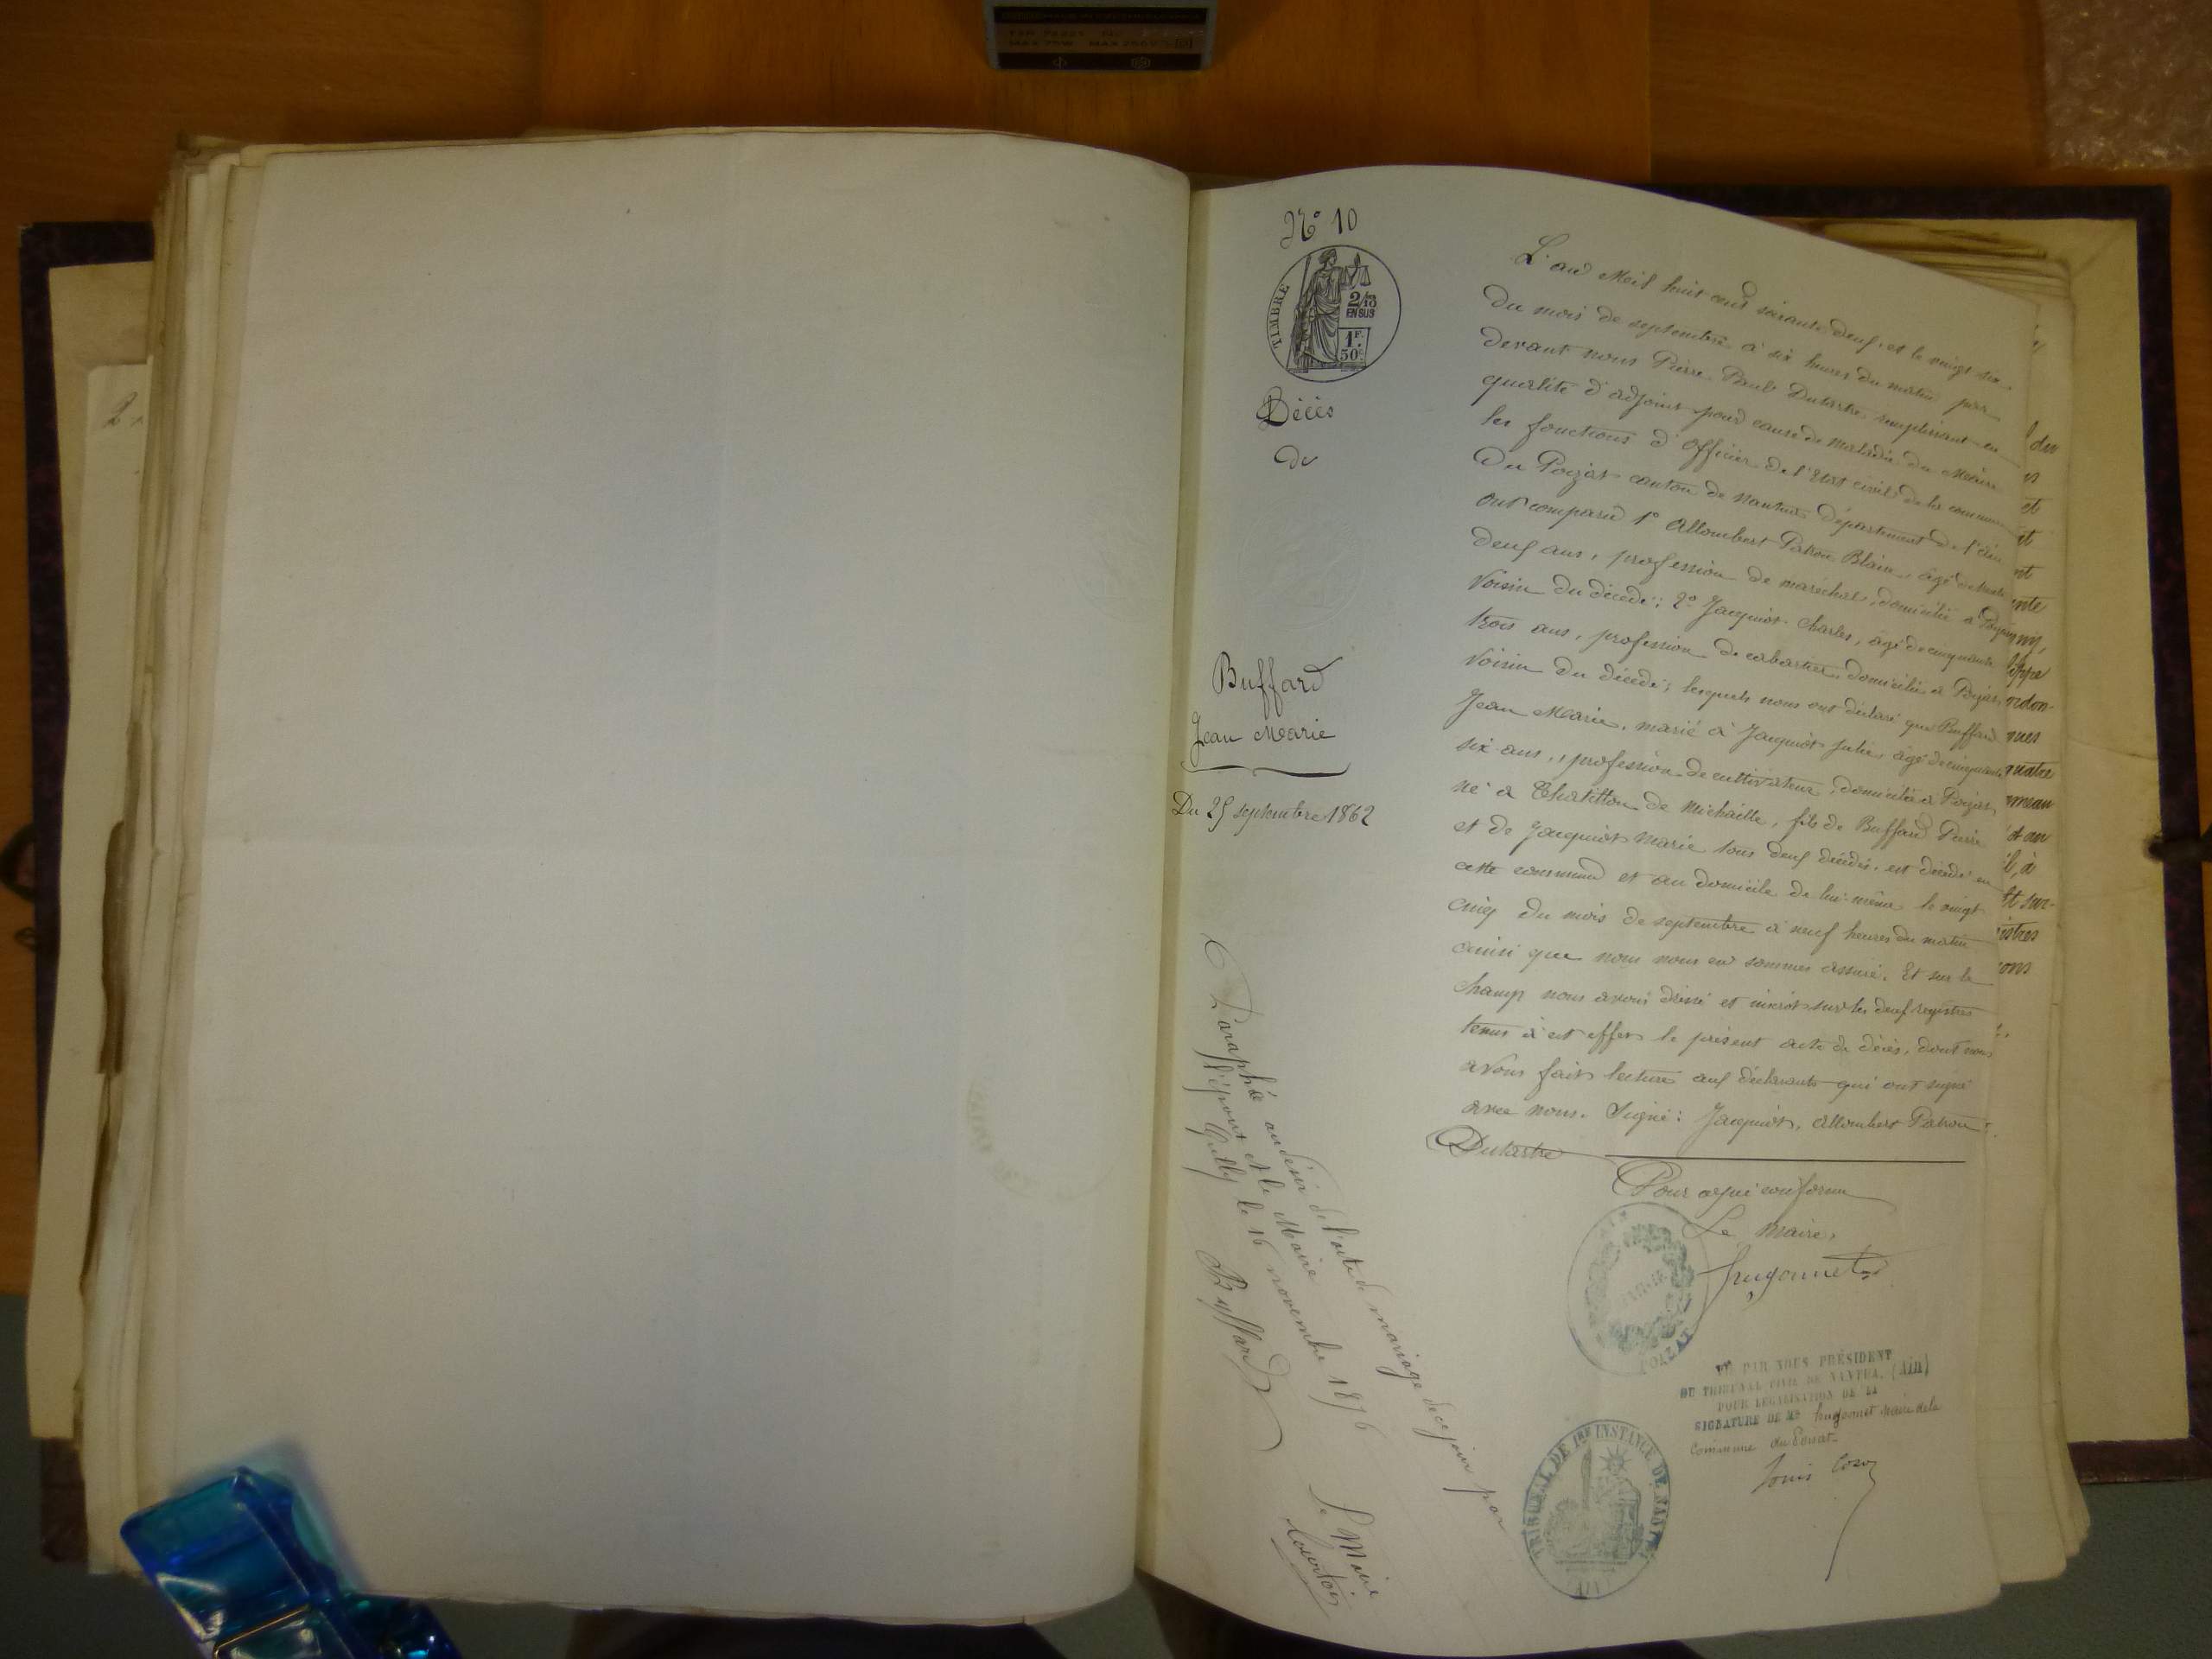 N° 10
TIMBRE
2/10
EN SUS
1F.
50c
Décès
de
Buffard
Jean Marie
Du 25 septembre 1862
L'an Mil huit cent soixante deux, et le vingt six
du mois de septembre à six heures du matin par
devant nous Pierre Paul Dutartre remplissant en
qualité d'adjoint pour cause de maladie du Maire
les fonctions d'Officier de l'Etat civil de la commune
Du Poizat canton de Nantua département de l'Ain
ont comparu 1° Allombert Patron Blain, âgé de trente
deux ans, profession de maréchal, domicilié à Poizat,
Voisin du décédé; 2° Jacquiot Charles, âgé de cinquante
trois ans, profession de cabartier, domicilié à Poizat,
Voisin du décédé; lesquels nous ont déclaré que Buffard
Jean Marie, marié à Jacquiot Julie, âgé de cinquante
six ans, profession de cultivateur, domicilié à Poizat,
né à Chatillon de Michaille, fils de Buffard Pierre
et de Jacquiot Marie tous deux décédés, est décédé en
cette commune et au domicile de lui-même le vingt
cinq du mois de septembre à neuf heures du matin
ainsi que nous nous en sommes assuré. Et sur le
champ nous avons dressé et inscrit sur les deux registres
tenus à cet effet le présent acte de décès, dont nous
avons fait lecture aux déclarants qui ont signé
avec nous. Signé: Jacquiot, Allombert Patron
Dutartre
Pour copie conforme
Le maire,
Hugonnet
MAIRIE
POIZAT
VU PAR NOUS PRÉSIDENT
DU TRIBUNAL CIVIL DE NANTUA, (Ain)
POUR LÉGALISATION DE LA
SIGNATURE DE Mr Hugonnet Maire de la
commune du Poizat
TRIBUNAL DE 1RE INSTANCE DE NANTUA
(AIN)
Paraphé au désir de l'acte de mariage de ce jour par
l'époux et le Maire
le 16 novembre 1876
Buffard
Le Maire